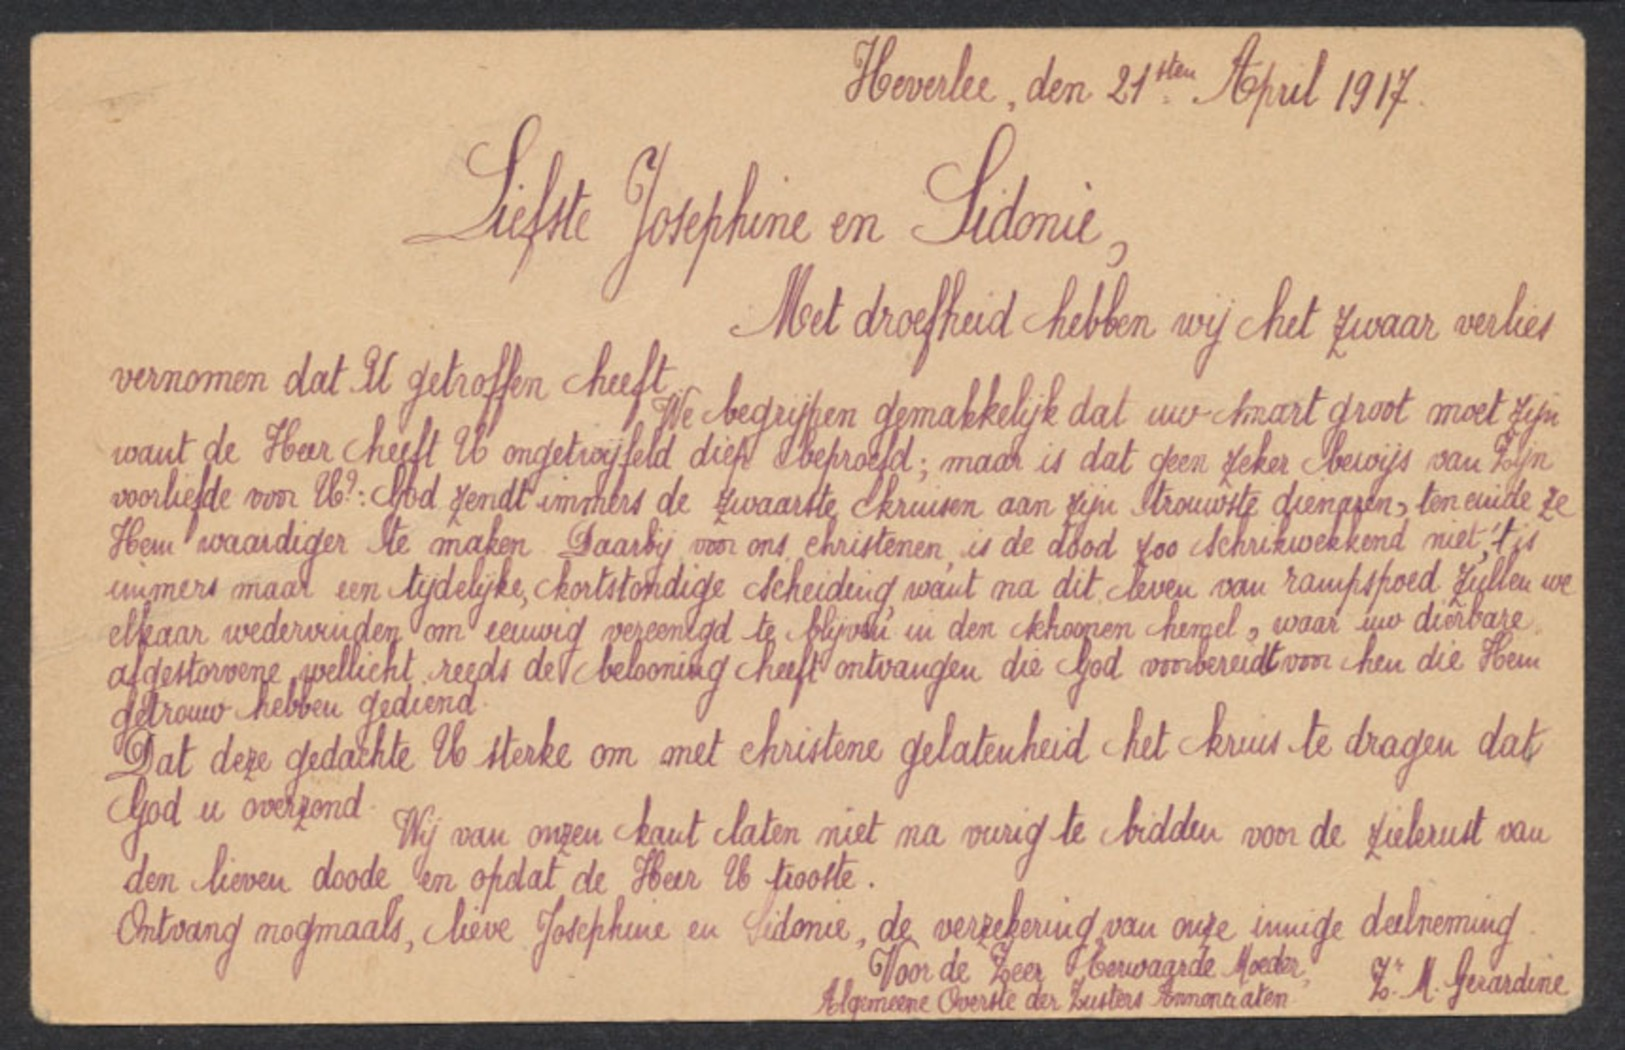 Heverlee, den 21sten April 1917.
Liefste Josephine en Sidonie,
Met droefheid hebben wij het zwaar verlies
vernomen dat U getroffen heeft.
We begrijpen gemakkelijk dat uw smart groot moet zijn
want de Heer heeft U ongetwijfeld diep beproefd; maar is dat geen zeker bewijs van Zijn
voorliefde voor U?: God zendt immers de zwaarste kruisen aan zijn trouwste dienaren, ten einde ze
Hem waardiger te maken. Daarbij voor ons, christenen, is de dood zoo schrikwekkend niet, 't is
immers maar een tijdelijke, kortstondige scheiding, want na dit leven van rampspoed zullen we
elkaar wedervinden om eeuwig vereenigd te blijven in den schoonen hemel, waar uw dierbare
afgestorvene wellicht reeds de belooning heeft ontvangen die God voorbereidt voor hen die Hem
getrouw hebben gediend.
Dat deze gedachte U sterke om met christene gelatenheid het kruis te dragen dat
God u overzond.
Wij van onzen kant laten niet na vurig te bidden voor de zielerust van
den lieven doode en opdat de Heer U trooste.
Ontvang nogmaals, lieve Josephine en Sidonie, de verzekering van onze innige deelneming.
Voor de Zeer Eerwaarde Moeder,
Algemeene Overste der Zusters Annonciaten
Zr. M. Gerardine